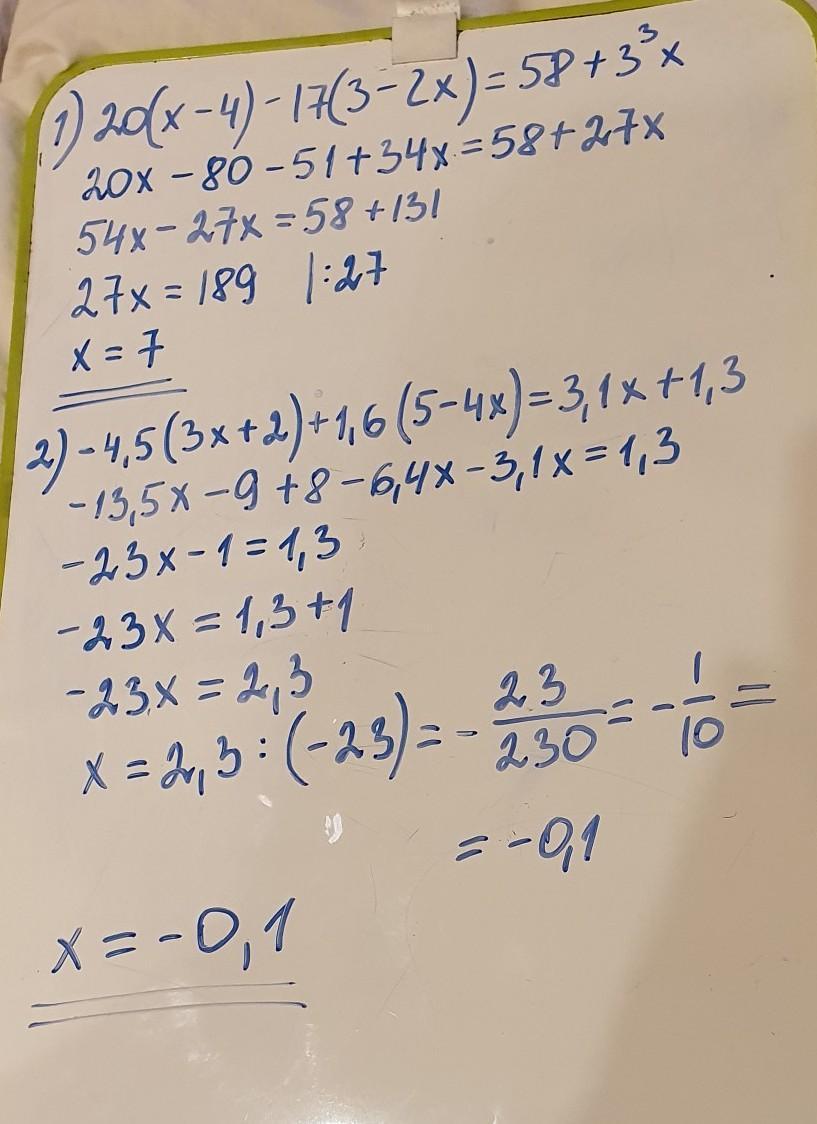 1) 20(x-4)-17(3-2x)=58+3³x
20x-80-51+34x=58+27x
54x-27x=58+131
27x=189 |:27
x=7
2) -4,5(3x+2)+1,6(5-4x)=3,1x+1,3
-13,5x-9+8-6,4x-3,1x=1,3
-23x-1=1,3
-23x=1,3+1
-23x=2,3
x=2,3:(-23)=-23/230=-1/10=
=-0,1
x=-0,1